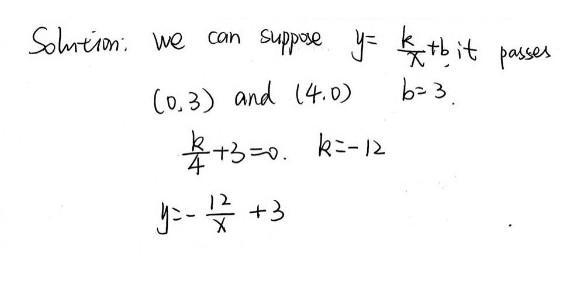 Solution: we can suppose y= k/x+b, it passes
(0,3) and (4.0) b=3.
k/4+3=0. k=-12
y=-12/x+3